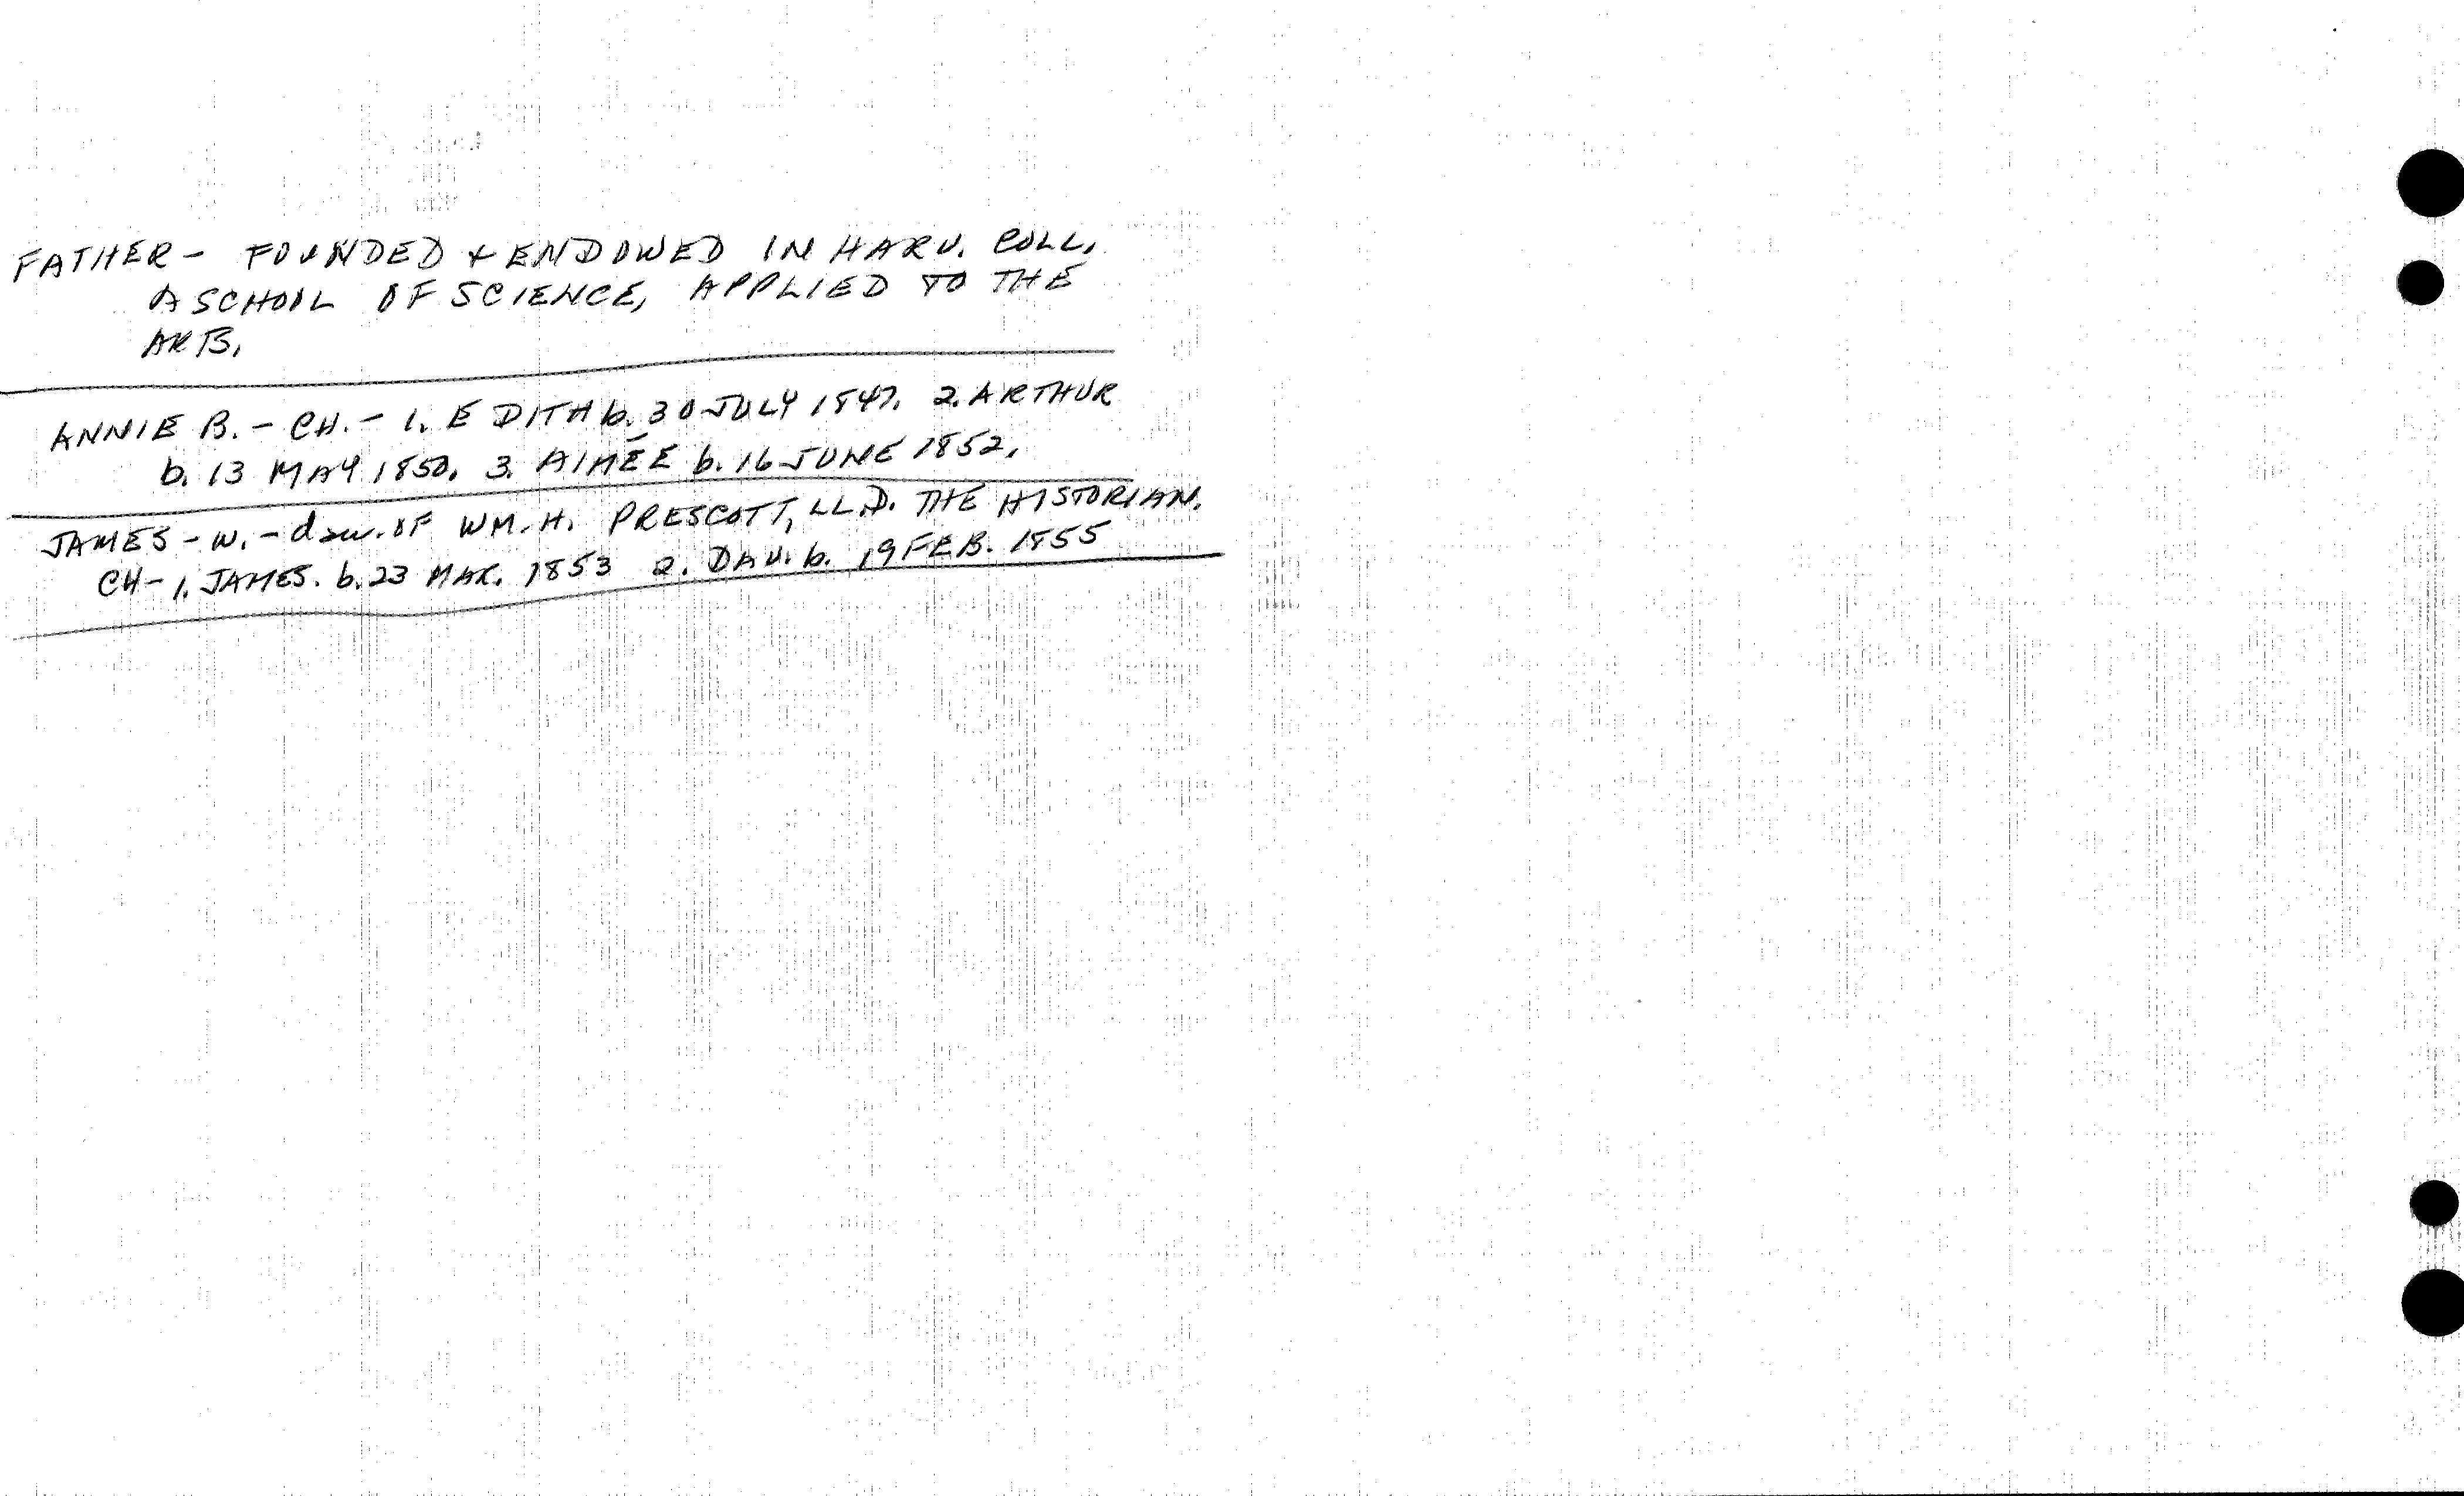 FATHER - FOUNDED & ENDOWED IN HARV. COLL.
A SCHOOL OF SCIENCE, APPLIED TO THE
ARTS.
ANNIE B. - CH. - 1. EDITH b. 30 JULY 1847. 2. ARTHUR
b. 13 MAY 1850. 3. AIMÉE b. 16 JUNE 1852.
JAMES - W. - dau. OF WM. H. PRESCOTT, LL.D. THE HISTORIAN.
CH - 1. JAMES. b. 23 MAR. 1853 2. DAU. b. 19 FEB. 1855